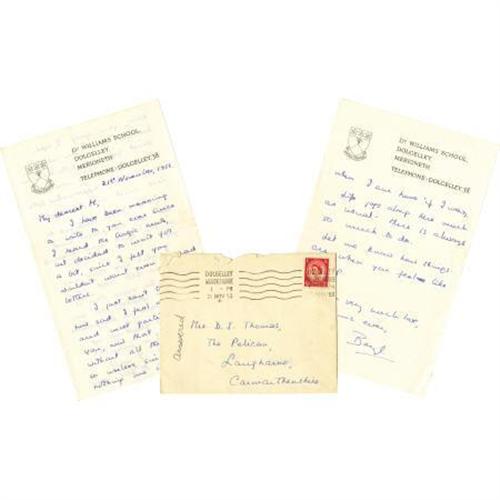 Dr WILLIAMS SCHOOL,
DOLGELLEY,
MERIONETH
TELEPHONE: DOLGELLEY: 38
21st November, 1953.
My dearest
I have been meaning
to write to you ever since
I heard the tragic news,
but decided to wait
a bit, since I felt you
wouldn't want
letters.
I just
how sad I
and most
you, and that
without all the
so useless
nothing one
Dr WILLIAMS SCHOOL,
DOLGELLEY,
MERIONETH
TELEPHONE: DOLGELLEY: 38
Life jogs along here much
as usual. There is always
so much to do.
let me know how things
are when you feel like
very much love,
ever,
DOLGELLEY
MERIONETHSHIRE
1 - PM
21 NOV 53
answered
Mrs. D. J. Thomas,
The Pelican,
Laugharne,
Carmarthenshire